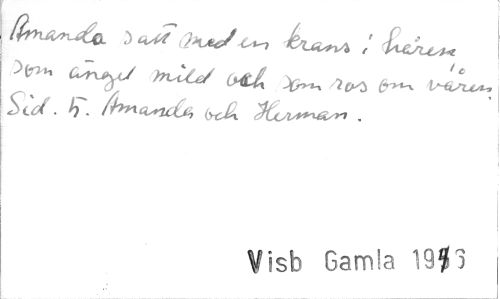 Amanda satt med en krans i håren,
som ängel mild och som ros om våren.
Sid. 5. Amanda och Herman.
Visb Gamla 1946